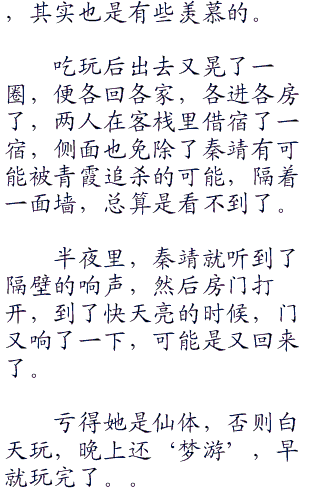 ，其实也是有些羡慕的。
吃玩后出去又晃了一
圈，便各回各家，各进各房
了，两人在客栈里借宿了一
宿，侧面也免除了秦靖有可
能被青霞追杀的可能，隔着
一面墙，总算是看不到了。
半夜里，秦靖就听到了
隔壁的响声，然后房门打
开，到了快天亮的时候，门
又响了一下，可能是又回来
了。
亏得她是仙体，否则白
天玩，晚上还‘梦游’，早
就玩完了。。